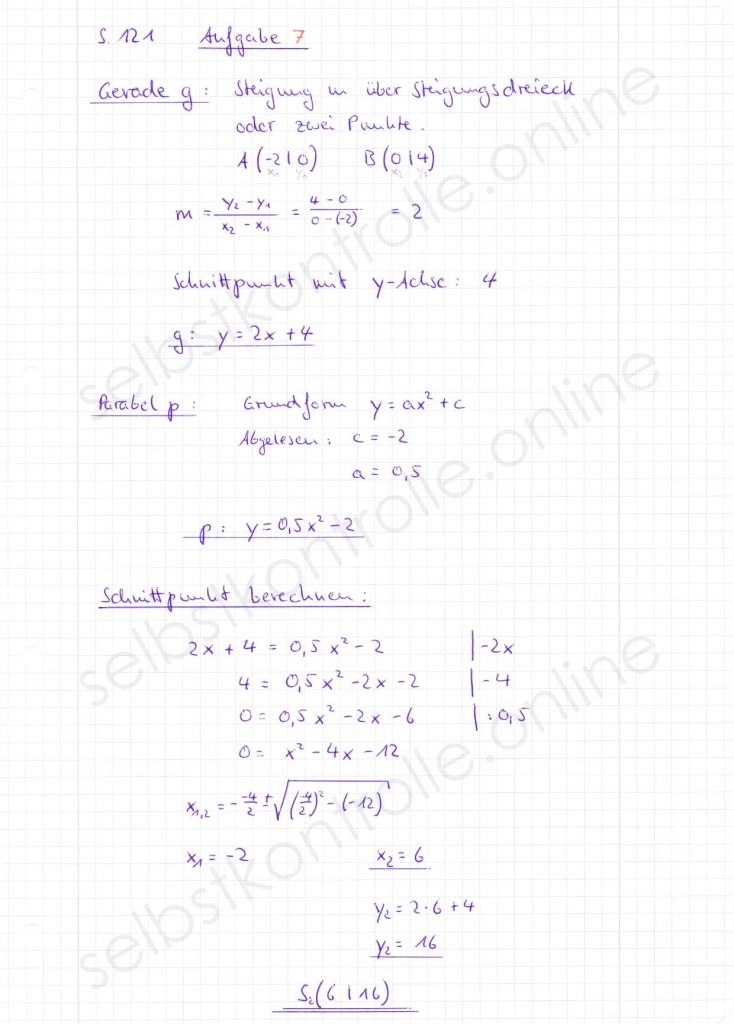 S. 121 Aufgabe 7
Gerade g: Steigung m über Steigungsdreieck
oder zwei Punkte.
A (-2|0) B (0|4)
x₁ y₁ x₂ y₂
m = (y₂ - y₁)/(x₂ - x₁) = (4 - 0)/(0 - (-2)) = 2
Schnittpunkt mit y-Achse: 4
g: y = 2x + 4
Parabel p: Grundform y = ax² + c
Abgelesen: c = -2
a = 0,5
p: y = 0,5x² - 2
Schnittpunkt berechnen:
2x + 4 = 0,5x² - 2 | -2x
4 = 0,5x² - 2x - 2 | -4
0 = 0,5x² - 2x - 6 | :0,5
0 = x² - 4x - 12
x₁,₂ = - -4/2 ± √((-4/2)² - (-12))
x₁ = -2 x₂ = 6
y₂ = 2·6 + 4
y₂ = 16
S₂(6|16)
selbstkontrolle.online
selbstkontrolle.online
selbstkontrolle.online